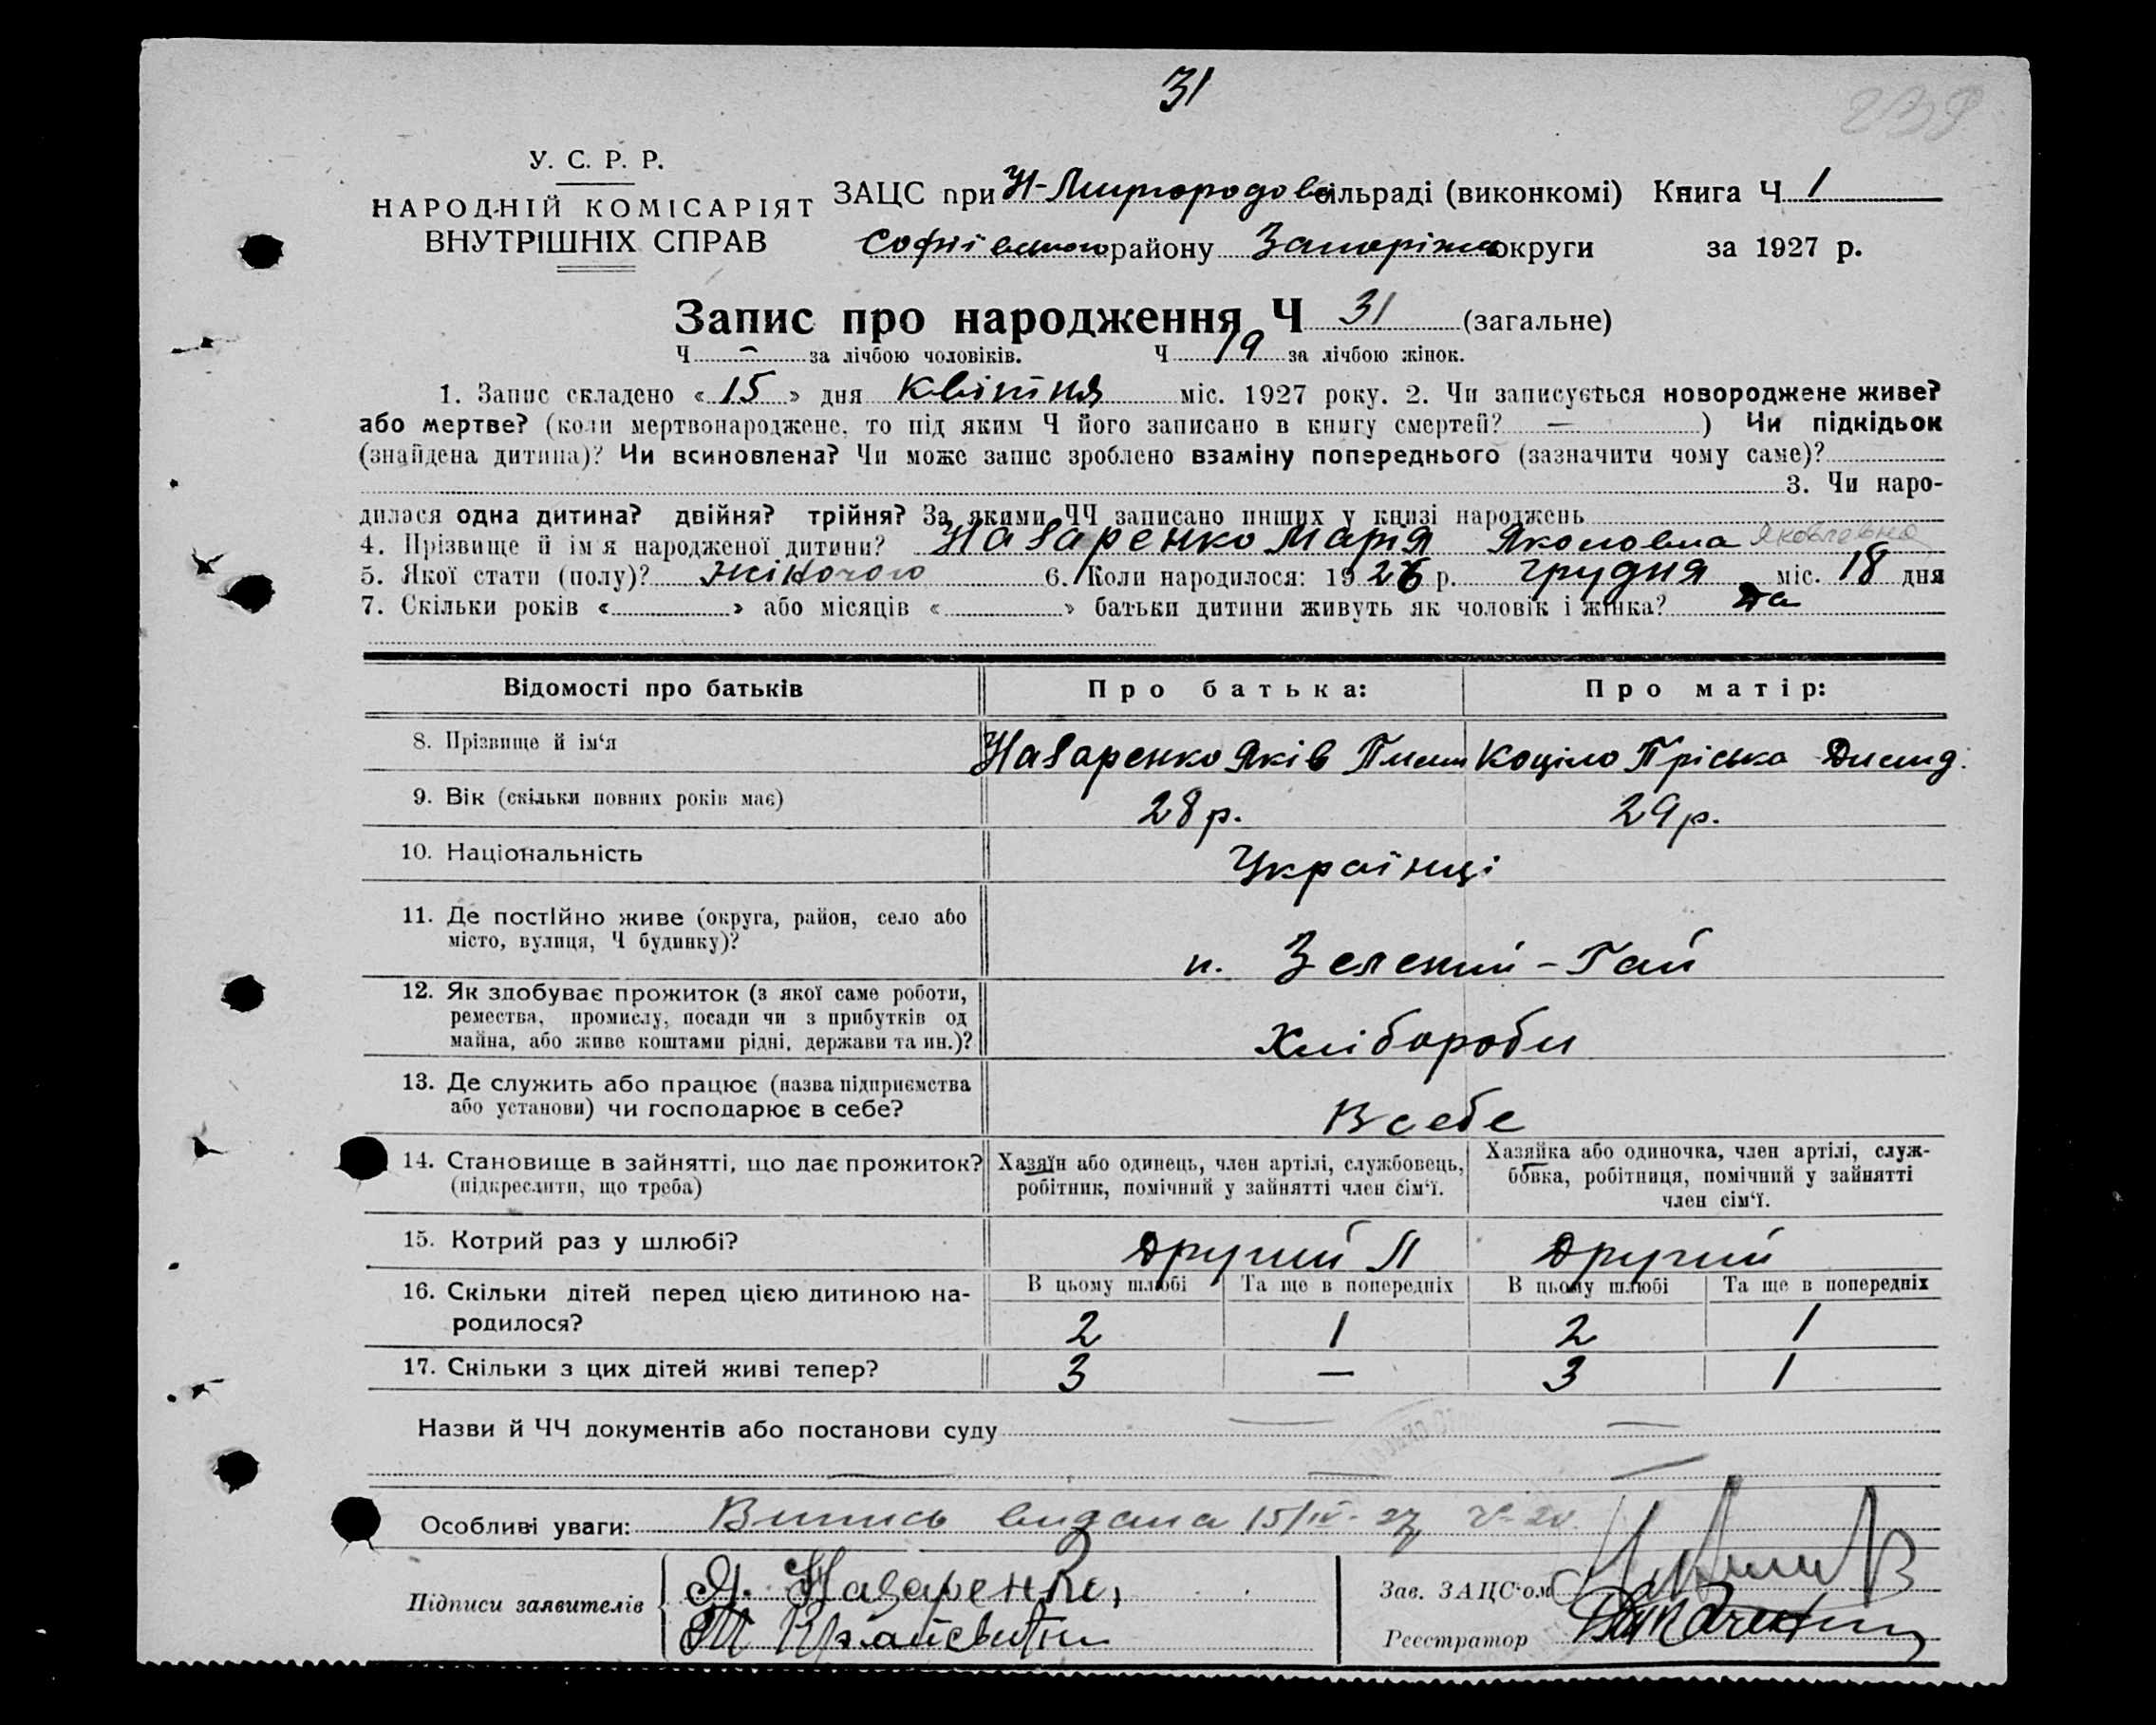 31
У. С. Р. Р.
НАРОДНІЙ КОМІСАРІЯТ
ВНУТРІШНІХ СПРАВ
ЗАЦС при Н-Миргородов сільраді (виконкомі) Книга Ч 1
Софіївського району Запоріжж округи за 1927 р.
Запис про народження Ч 31 (загальне)
Ч – за лічбою чоловіків. Ч 19 за лічбою жінок.
1. Запис складено «15» дня Квітня міс. 1927 року. 2. Чи записується новороджене живе?
або мертве? (коли мертвонароджене, то під яким Ч його записано в книгу смертей? — ) Чи підкідьок
(знайдена дитина)? Чи всиновлена? Чи може запис зроблено взаміну попереднього (зазначити чому саме)?
3. Чи наро-
дилася одна дитина? двійня? трійня? За якими ЧЧ записано инших у книзі народжень
4. Прізвище й ім'я народженої дитини? Назаренко Марія Якововна Яковлевна
5. Якої стати (полу)? жіночого 6. Коли народилося: 1926 р. грудня міс. 18 дня
7. Скільки років « » або місяців « » батьки дитини живуть як чоловік і жінка? Да
Відомості про батьків Про батька: Про матір:
8. Прізвище й ім‘я Назаренко Яків Коціло Пріська
9. Вік (скільки повних років має) 28 р. 29 р.
10. Національність Українці
11. Де постійно живе (округа, район, село або
місто, вулиця, Ч будинку)? п. Зелений-Гай
12. Як здобуває прожиток (з якої саме роботи,
ремества, промислу, посади чи з прибутків од
майна, або живе коштами рідні, держави та ин.)? Хлібороби
13. Де служить або працює (назва підприємства
або установи) чи господарює в себе? В себе
14. Становище в зайнятті, що дає прожиток?
(підкреслити, що треба)
Хазяїн або одинець, член артілі, службовець,
робітник, помічний у зайнятті член сім‘ї.
Хазяйка або одиночка, член артілі, служ-
бовка, робітниця, помічний у зайнятті
член сім‘ї.
15. Котрий раз у шлюбі? Другий II Другий
16. Скільки дітей перед цією дитиною на-
родилося?
В цьому шлюбі Та ще в попередніх В цьому шлюбі Та ще в попередніх
2 1 2 1
17. Скільки з цих дітей живі тепер? 3 — 3 1
Назви й ЧЧ документів або постанови суду
Особливі уваги: Випись видана 15/IV-27
Підписи заявителів Я. Назаренко
Зав. ЗАЦС‘ом
Реєстратор